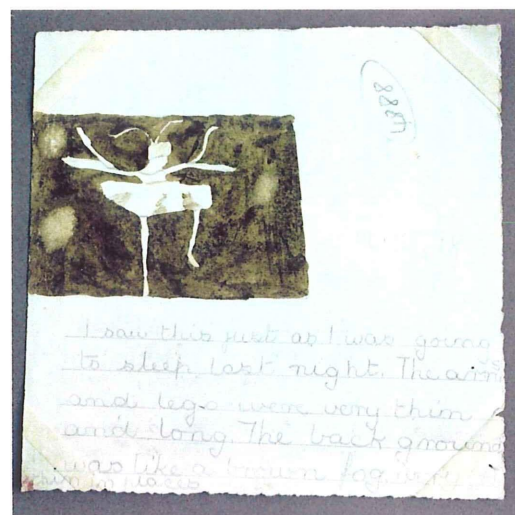 I saw this just as I was going
to sleep last night. The arms
and legs were very thin
and long. The back ground
was like a brown fog very
thin in places